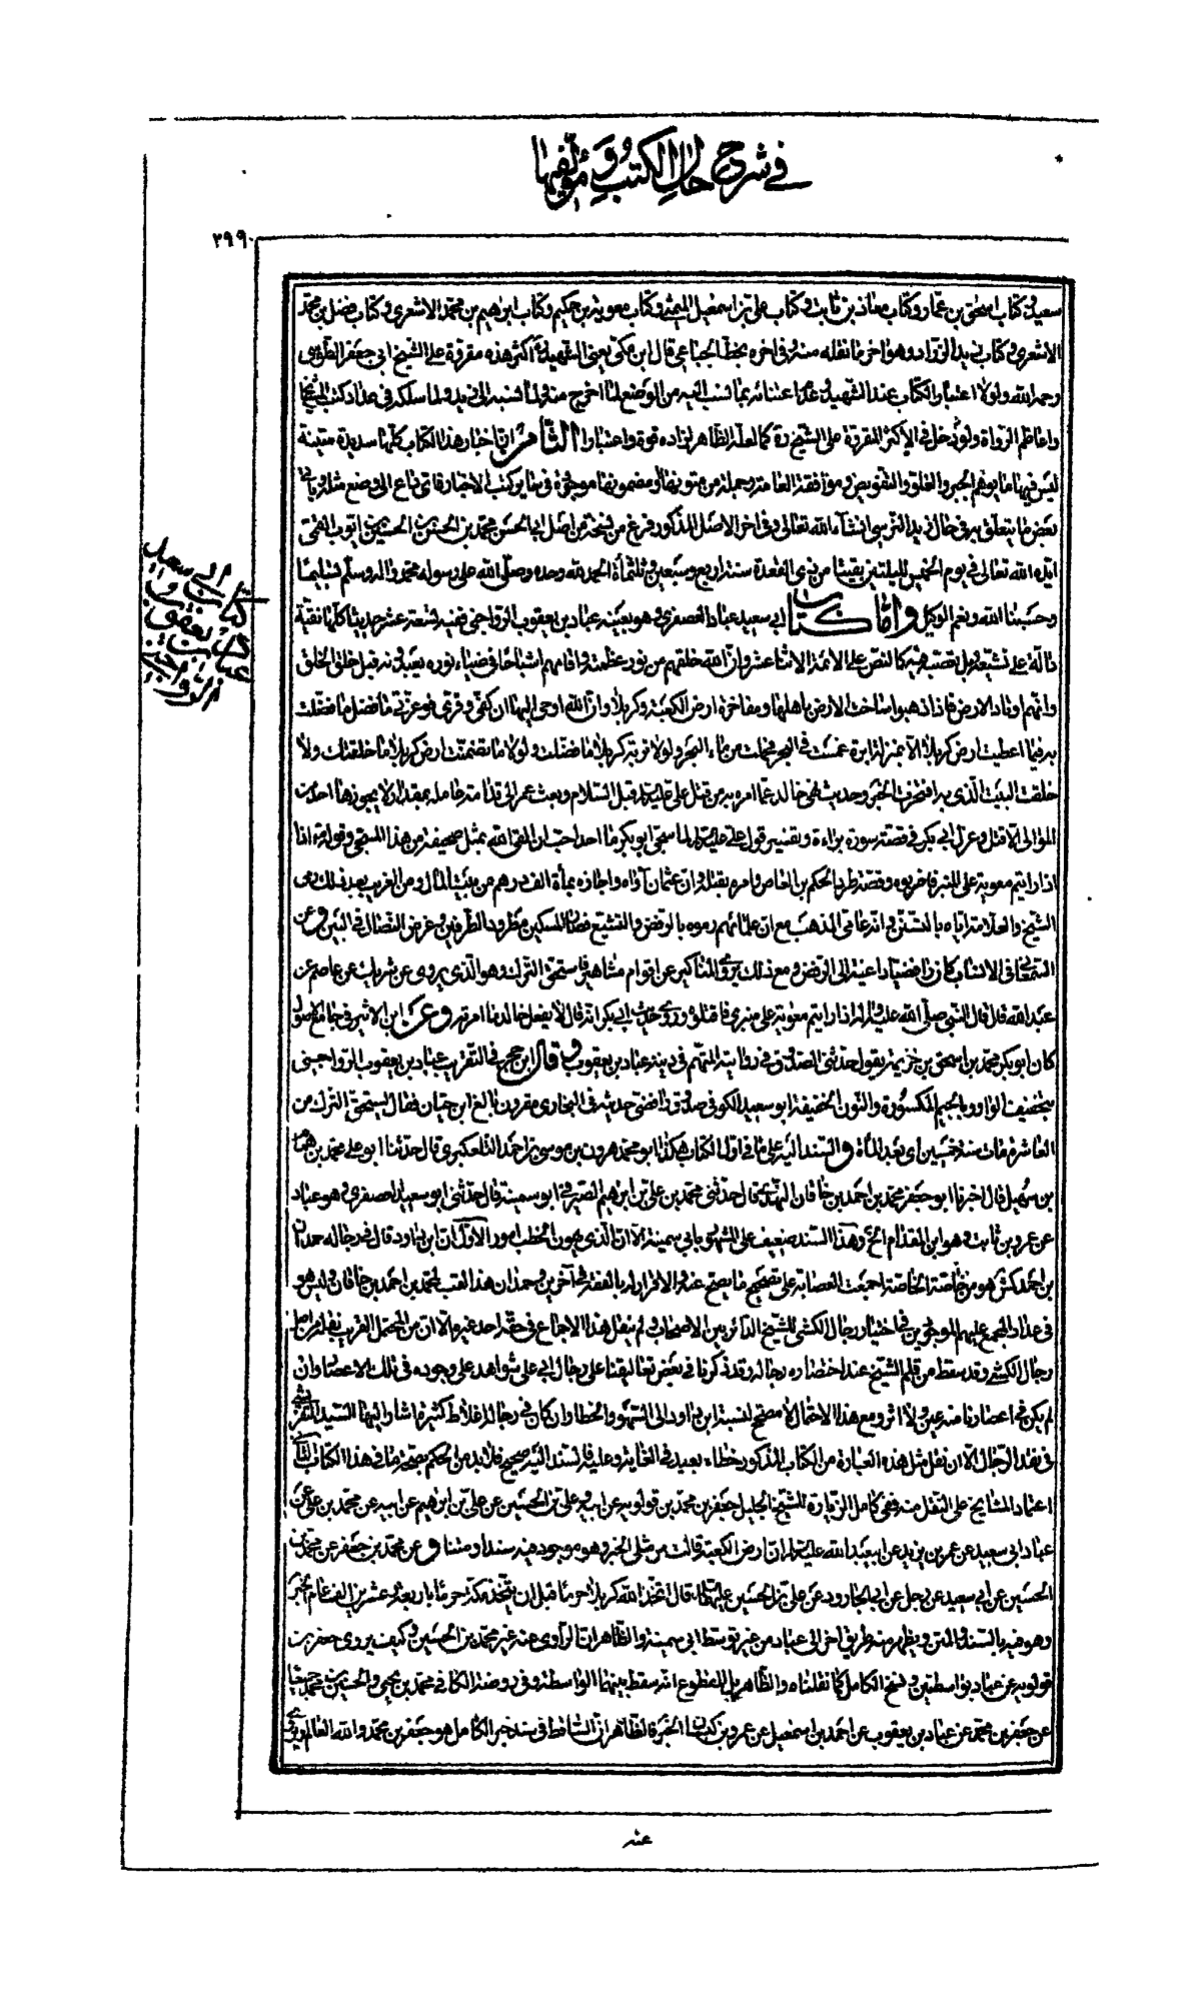 في شرح حال الكتب ومؤلفيها
٢٩٩
سعيد وكتاب اسحق بن عمار وكتاب معاذ بن ثابت وكتاب علي بن اسمعيل الميثمي وكتاب معوية بن حكيم وكتاب ابرهيم بن محمد الاشعري وكتاب فضل بن محمد
الاشعري وكتاب زيد الزراد وهو اخر ما نقله منه وفي اخره بخط الجباعي قال ابن مكي يعني الشهيد ره اكثر هذه مقروة على الشيخ ابي جعفر الطوسي
رحمه الله ولولا اعتبار الكتاب عند الشهيد وعدم اعتنائه بما نسب اليه من الوضع لما اخرج منه ولما نسبه الى زيد ولما سلكه في عداد كتب المشايخ
واعاظم الرواة ولو دخل في الاكثر المقروة على الشيخ ره كما لعله الظاهر لزاده قوة واعتبارا الثامن ان اخبار هذا الكتاب كلها سديدة متينة
ليس فيها ما يوهم الجبر والغلو والتفويض وموافقة العامة وجملة من متونها ومضمونها موجودة في ساير كتب الاخبار فاي داع الى وضع مثله وياتي
بعض ما يتعلق به في حال زيد النرسي انشاء الله تعالى وفي اخر الاصل المذكور فرغ من نسخه من اصل ابي الحسن محمد بن الحسن بن الحسين بن ايوب القمي
ايده الله تعالى في يوم الخميس لليلتين بقيتا من ذي القعدة سنة اربع وسبعين وثلثمأة الحمد لله وحده وصلى الله على رسوله محمد واله وسلم تسليما
وحسبنا الله ونعم الوكيل واما كتاب ابي سعيد عباد العصفري وهو بعينه عباد بن يعقوب الرواجني ففيه تسعة عشر حديثا كلها نقية
دالة على تشيعه بل تعصبه فيه كالنص على الائمة الاثنا عشر وان الله خلقهم من نور عظمته واقامهم اشباحا في ضياء نوره يعبدونه قبل خلق الخلق
وانهم اوتاد الارض فاذا ذهبوا ساخت الارض باهلها ومفاخرة ارض الكعبة وكربلا وان الله اوحى اليها ان كفي وقري فوعزتي ما فضل ما فضلت
به فيما اعطيت ارض كربلا الا بمنزلة ابرة غمست في البحر فحملت من ماء البحر ولولا تربة كربلا ما فضلت ولولا ما تضمنت ارض كربلا ما خلقتك ولا
خلقت البيت الذي به افتخرت الخبر وحديث نهي خالد عما امره به من قتل علي عليه السلام قبل السلام وبعث عمر الى قدامة عامله بمقدار لا يجوزها احد من
الموالي الا قتل وعزل ابي بكر في قصة سورة براءة وتفسير قول علي عليه السلام لما سجي ابو بكر ما احد احب ان القى الله بمثل صحيفته من هذا المسجى وقوله ص اذا
اذا رايتم معوية على المنبر فاضربوه وقصة طرد الحكم بن العاص وامره بقتله وان عثمان آواه واجازه بمأة الف درهم من بيت المال ومن الغريب بعد ذلك رمي
الشيخ والعلامة اياه بالتسنن وانه عامي المذهب مع ان علمائهم رموه بالرفض والتشيع فصار المسكين مطرود الطرفين وغرض النصال في البين وعن
السمعاني في الانساب كان رافضيا داعية الى الرفض ومع ذلك يروي المناكير عن اقوام مشاهير فاستحق الترك وهو الذي يروي عن شريك عن عاصم عن
عبد الله قال قال النبي صلى الله عليه واله اذا رايتم معوية على منبري فاقتلوه وروى حديث ابي بكر انه قال لا يفعل خالد ما امرته وعن ابن الاثير في جامع الاصول
كان ابو بكر محمد بن اسحق بن خزيمة يقول حدثني الصدوق في روايته المتهم في دينه عباد بن يعقوب وقال ابن حجر في التقريب عباد بن يعقوب الرواجني
بتخفيف الواو وبالجيم المكسورة والنون الخفيفة ابو سعيد الكوفي صدوق رافضي حديثه في البخاري مقرون بالغ ابن حبان فقال يستحق الترك من
العاشرة مات سنة خمسين اي بعد المأة والسند اليه على ما في اول الكتاب هكذا ابو محمد هرون بن موسى بن احمد التلعكبري قال حدثنا ابو علي محمد بن همام
بن سهيل قال اخبرنا ابو جعفر محمد بن احمد بن خاقان النهدي قال حدثني محمد بن علي بن ابرهيم الصيرفي ابو سمينة قال حدثني ابو سعيد العصفري وهو عباد
عن عمرو بن ثابت وهو ابن المقدام الخ وهذا السند ضعيف على المشهور بابي سمينة الا ان الذي يهون الخطب امور الاول ان ابن داود قال في رجاله حمدان
بن احمد كش هو من خاصة الخاصة اجمعت العصابة على تصحيح ما يصح عنه والاقرار له بالفقه في آخرين وحمدان هذا لقب لمحمد بن احمد بن خاقان وليس هو
في عداد المجمع عليهم الموجودين في اختيار رجال الكشي للشيخ الدائر بين الاصحاب ولم ينقل هذا الاجماع في حقه احد غيره الا ان من المحتمل القريب نقله من اصل
رجال الكشي وقد سقط من قلم الشيخ عند اختصاره رجاله وقد ذكرنا في بعض تعاليقنا على رجال ابي علي شواهد على وجوده في تلك الاعصار وان
لم يكن في اعصارنا منه عين ولا اثر ومع هذا الاحتمال لا مصحح لنسبة ابن داود الى السهو والخطا وان كان في رجاله اغلاط كثيرة اشار اليها السيد التفرشي
في نقد الرجال الا ان نقل مثل هذه العبارة من الكتاب المذكور خطاء بعيد في الغاية وعليه فالسند اليه صحيح فلا بد من الحكم بصحة ما في هذا الكتاب الثاني
اعتماد المشايخ على النقل منه ففي كامل الزيارة للشيخ الجليل جعفر بن محمد بن قولويه عن ابيه وعلي بن الحسين عن علي بن ابرهيم عن ابيه عن محمد بن علي عن
عباد ابي سعيد عن عمر بن يزيد عن ابي عبد الله عليه السلام ان ارض الكعبة قالت من مثلي الخبر وهو موجود فيه سندا ومتنا وعن محمد بن جعفر عن محمد بن
الحسين عن ابي سعيد عن رجل عن ابي الجارود عن علي بن الحسين عليهما السلام قال اتخذ الله كربلا حرما قبل ان يتخذ مكة حرما باربعة وعشرين الف عام الخبر
وهو فيه بالسند والمتن ويظهر منه طريق اخر الى عباد من غير توسط ابي سمينة والظاهر ان الراوي عنه غير محمد بن الحسين وكيف يروي جعفر بن
قولويه عن عباد بواسطتين ونسخ الكامل كما نقلناه والظاهر بل المقطوع انه سقط بينهما الواسطة وفي روضة الكافي محمد بن يحيى والحسين بن محمد جميعا
عن جعفر بن محمد عن عباد بن يعقوب عن احمد بن اسمعيل عن عمرو بن كيسان الخبر فالظاهر ان الساقط في سند خبر الكامل هو جعفر بن محمد والله العالم ويروي
كتاب ابي سعيد
عباد بن يعقوب
الرواجني
عنه